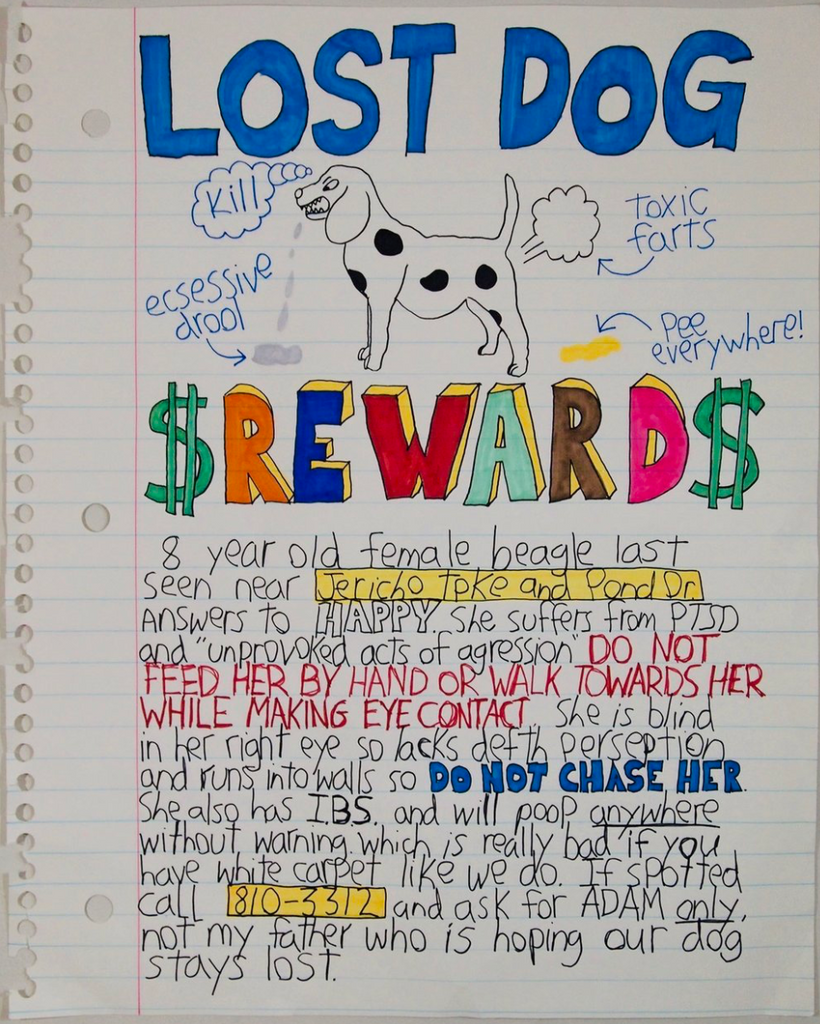 LOST DOG
Kill
toxic
farts
ecsessive
drool
pee
everywhere!
$REWARD$
8 year old female beagle last
seen near Jericho Tpke and Pond Dr.
Answers to HAPPY. She suffers from PTSD
and "unprovoked acts of agression" DO NOT
FEED HER BY HAND OR WALK TOWARDS HER
WHILE MAKING EYE CONTACT. She is blind
in her right eye so lacks defth perseption
and runs into walls so DO NOT CHASE HER.
She also has I.B.S. and will poop anywhere
without warning which is really bad if you
have white carpet like we do. If spotted
call 810-3312 and ask for ADAM only,
not my father who is hoping our dog
stays lost.